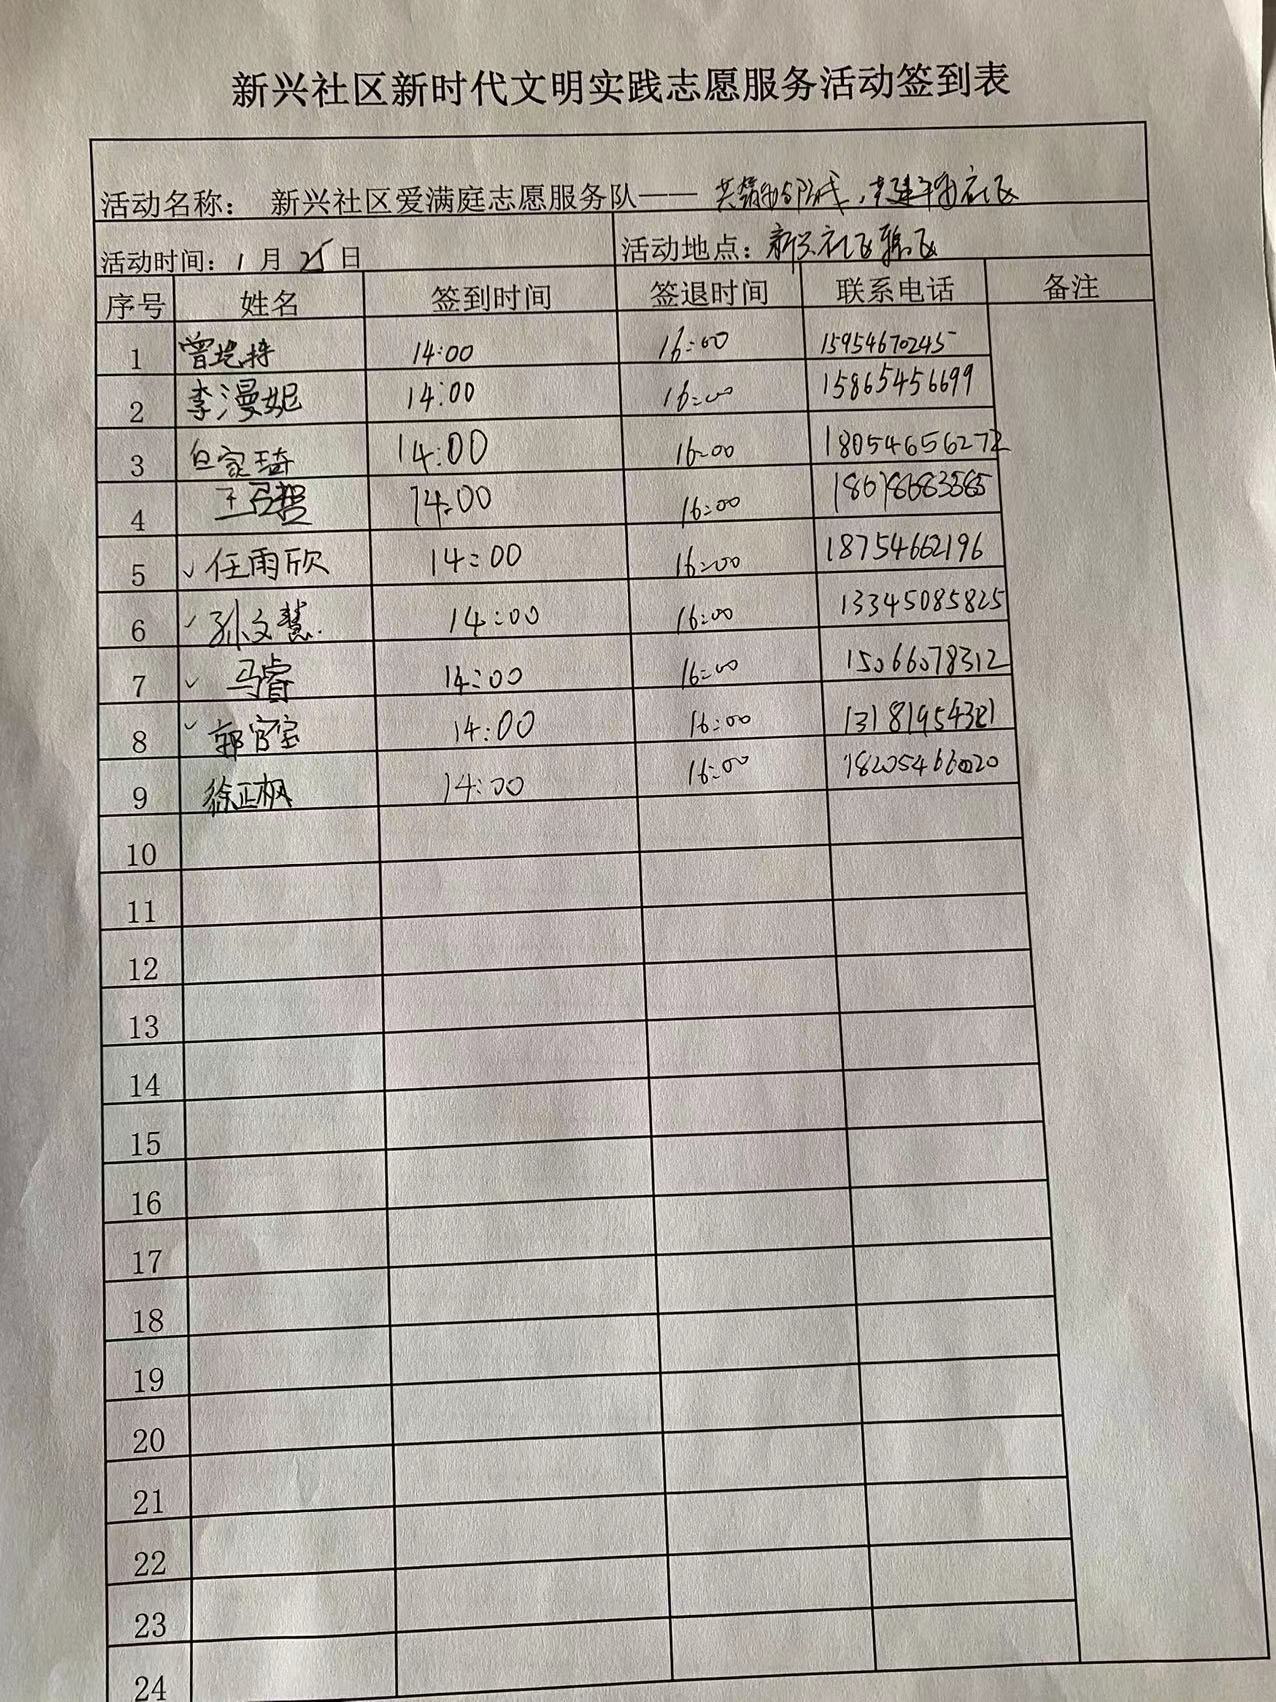 新兴社区新时代文明实践志愿服务活动签到表
活动名称： 新兴社区爱满庭志愿服务队——共筑 防线，共建平安社区
活动时间：1月25日 活动地点：新兴社区辖区
序号 姓名 签到时间 签退时间 联系电话 备注
1 曾 14:00 16:00 15954670245
2 李漫妮 14:00 16:00 15865456699
3 白家琦 14:00 16:00
4 王 14:00 16:00
5 ✓任雨欣 14:00 16:00 18754662196
6 ✓孙文慧 14:00 16:00 13345085825
7 ✓马睿 14:00 16:00 15066078312
8 ✓郭 14:00 16:00
9 徐正枫 14:00 16:00
10
11
12
13
14
15
16
17
18
19
20
21
22
23
24